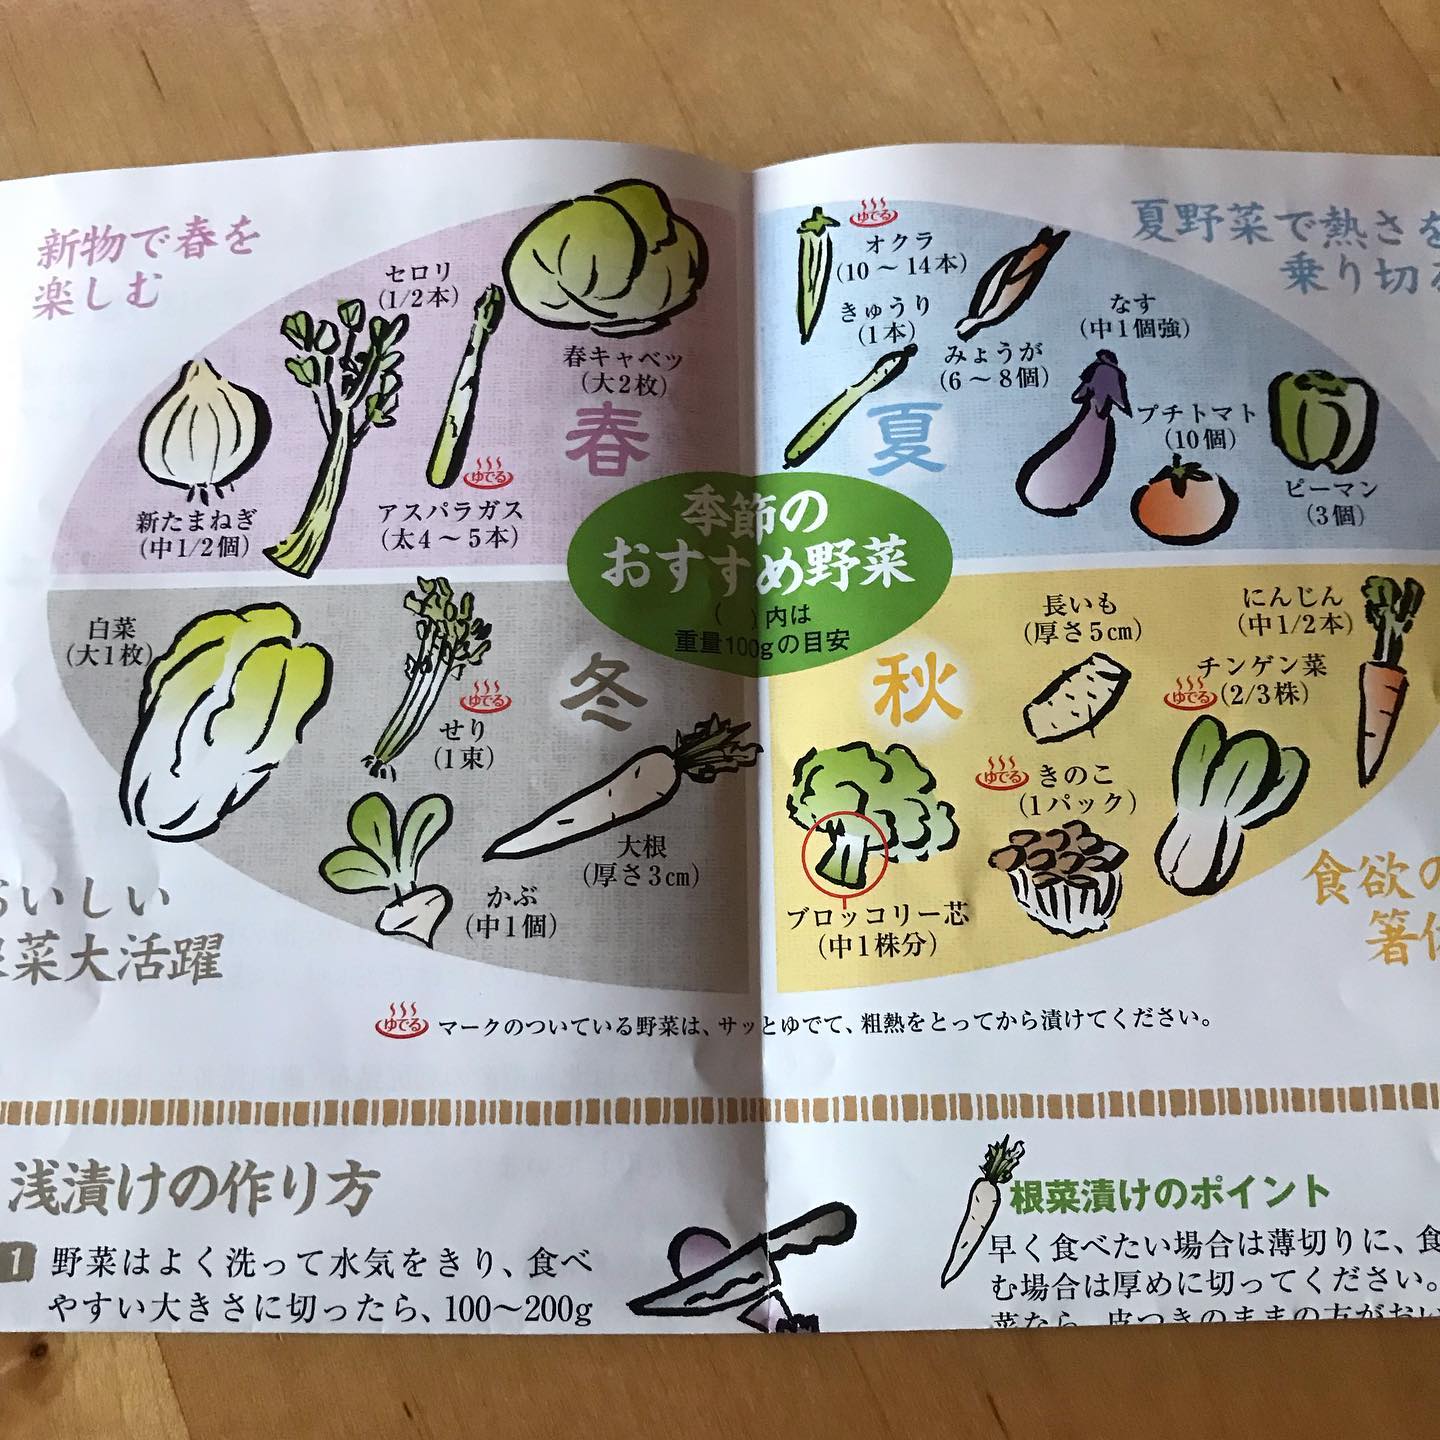 新物で春を
楽しむ
セロリ
(1/2本)
春キャベツ
(大2枚)
新たまねぎ
(中1/2個)
ゆでる
アスパラガス
(太4～5本)
春
夏野菜で熱さを
乗り切る
ゆでる
オクラ
(10～14本)
きゅうり
(1本)
みょうが
(6～8個)
なす
(中1個強)
プチトマト
(10個)
ピーマン
(3個)
夏
季節の
おすすめ野菜
( )内は
重量100gの目安
白菜
(大1枚)
ゆでる
せり
(1束)
冬
大根
(厚さ3cm)
かぶ
(中1個)
おいしい
菜大活躍
秋
長いも
(厚さ5cm)
にんじん
(中1/2本)
ゆでる
チンゲン菜
(2/3株)
ゆでる
きのこ
(1パック)
ブロッコリー芯
(中1株分)
食欲の
箸休
ゆでる マークのついている野菜は、サッとゆでて、粗熱をとってから漬けてください。
浅漬けの作り方
1 野菜はよく洗って水気をきり、食べ
やすい大きさに切ったら、100～200g
根菜漬けのポイント
早く食べたい場合は薄切りに、食
む場合は厚めに切ってください。
菜なら、皮つきのままの方がおい